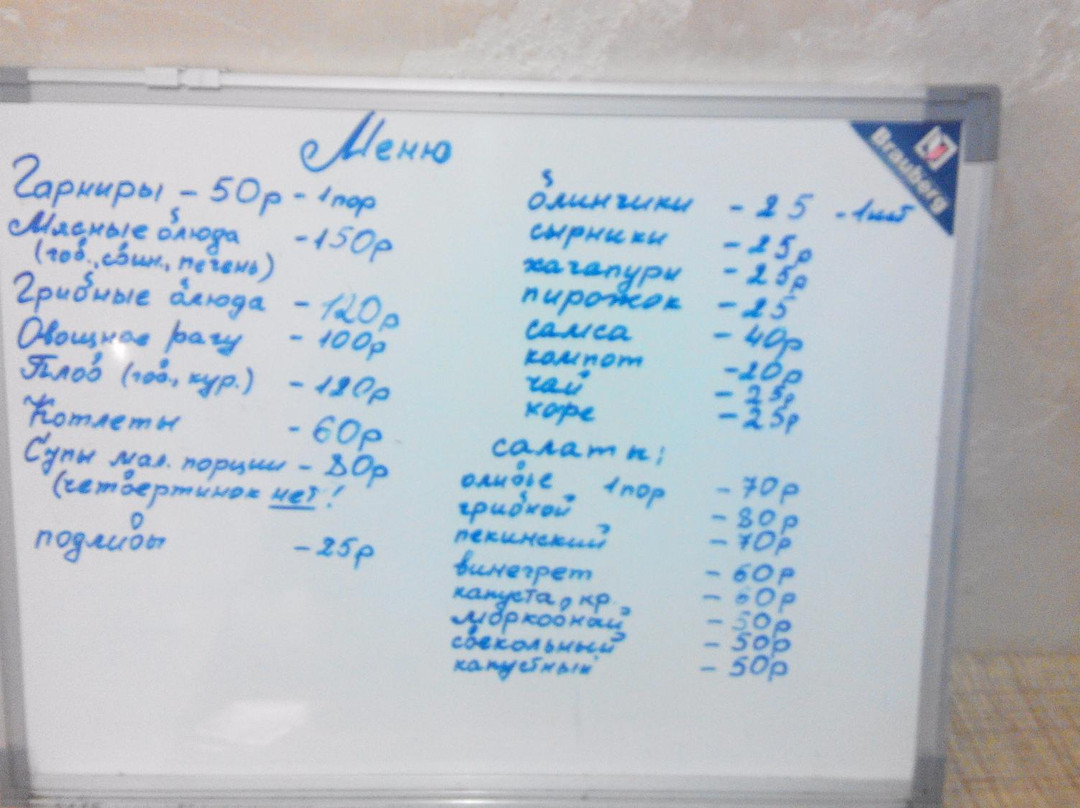 Меню
Гарниры - 50р - 1пор
Мясные блюда - 150р
(гов., свин., печень)
Грибные блюда - 120р
Овощное рагу - 100р
Плов (гов., кур.) - 120р
Котлеты - 60р
Супы мал. порции - 80р
(четвертинок нет!
подливы - 25р
блинчики - 25 - 1шт
сырники - 25р
хачапури - 25р
пирожок - 25
самса - 40р
компот - 20р
чай - 25р
кофе - 25р
салаты:
оливье 1пор - 70р
грибной - 80р
пекинский - 70р
винегрет - 60р
капуста, кр. - 60р
морковный - 50р
свекольный - 50р
капустный - 50р
Brauberg